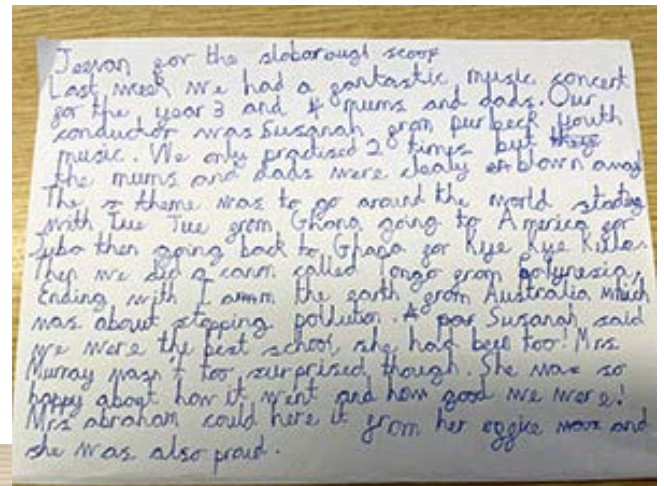 Jeevan for the sloborough scoop
Last week we had a fantastic music concert
for the year 3 and 4 mums and dads. Our
conductor was Susanah from purbeck youth
music. We only practised 2 times but they
the mums and dads were clealy blown away
The theme was to go around the world stating
with Tue Tue from Ghana going to America for
then going back to Ghana for Kye Kye Kule.
Then we did a cann called Tongo from polynesia,
Ending with I am the earth from Australia which
was about stopping pollution. Susanah said
we were the best school she had bee too! Mrs
Murray wasn't too surprised though. She was so
happy about how it went and how good we were!
Mrs abraham could here it from her office and
she was also proud.